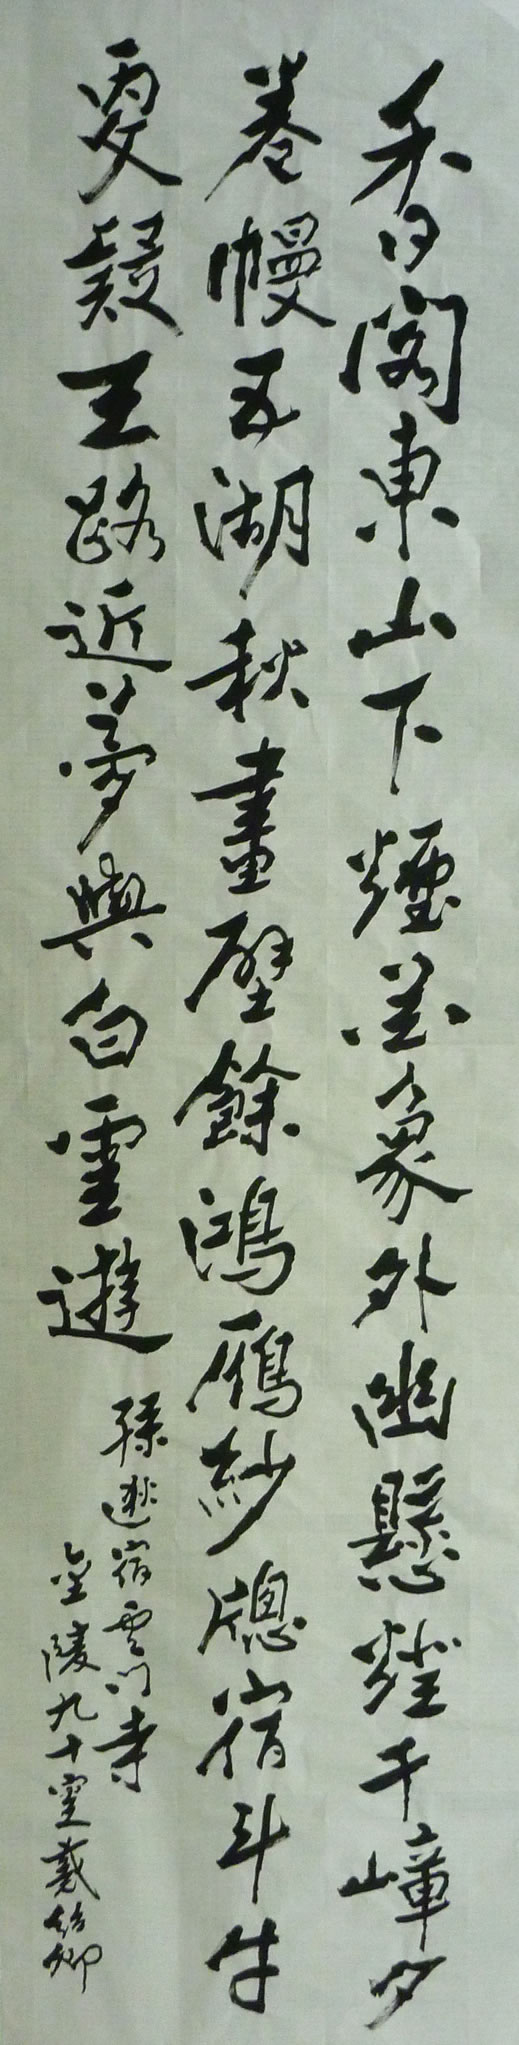 香閣東山下煙花象外幽懸燈千嶂夕
卷幔五湖秋畫壁餘鴻鴈紗牕宿斗牛
更疑王路近夢與白雲遊
孫逖宿雲門寺
金陵九十叟戴卿